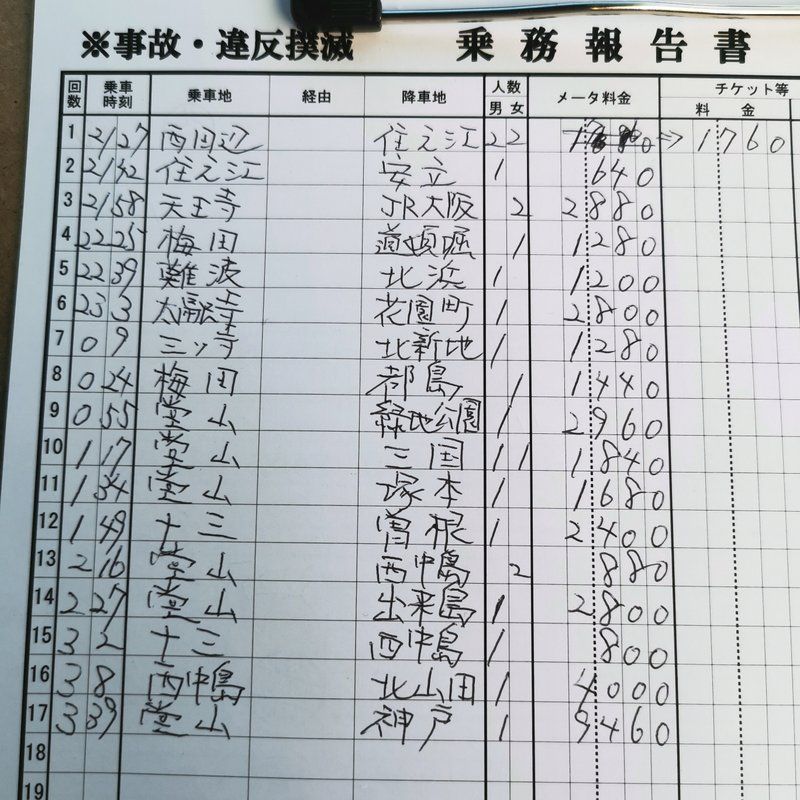 ※事故・違反撲滅 乗務報告書
回数 乗車時刻 乗車地 経由 降車地 人数 男 女 メータ料金 チケット等 料 金
1 21 27 西田辺 住之江 2 2 ⇒ 1760
2 21 42 住之江 安立 1 640
3 21 58 天王寺 JR大阪 2 2880
4 22 25 梅田 道頓堀 1 1280
5 22 39 難波 北浜 1 1200
6 23 3 太融寺 花園町 1 2800
7 0 9 三ッ寺 北新地 1 1280
8 0 24 梅田 都島 1 1440
9 0 55 堂山 緑地公園 1 2960
10 1 17 堂山 三国 1 1 1840
11 1 34 堂山 塚本 1 1680
12 1 49 十三 曽根 1 2400
13 2 16 堂山 西中島 2 880
14 2 27 堂山 出来島 1 2800
15 3 2 十三 西中島 1 800
16 3 8 西中島 北山田 1 4000
17 3 39 堂山 神戸 1 9460
18
19